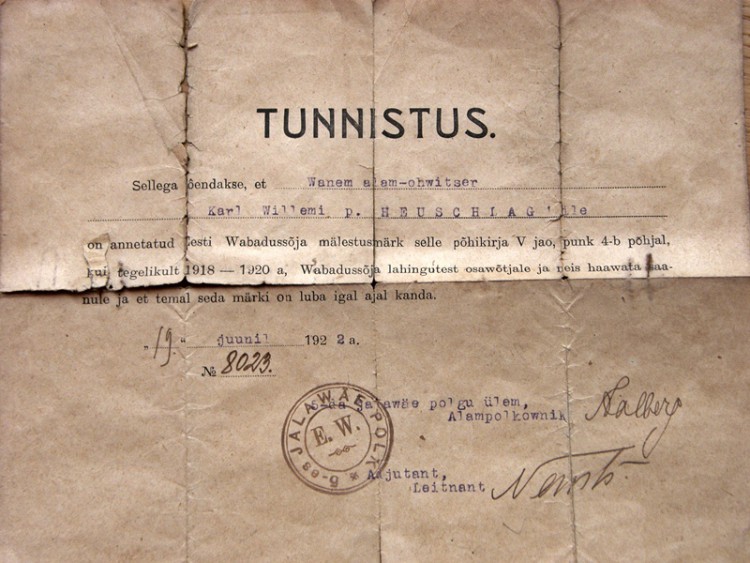 TUNNISTUS.
Sellega õendakse, et Wanem alam-ohwitser
Karl Willemi p. HEUSCHLAG'ile
on annetatud Eesti Wabadussõja mälestusmärk selle põhikirja V jao, punk 4-b põhjal,
kui tegelikult 1918 — 1920 a, Wabadussõja lahingutest osawõtjale ja neis haawata saa-
nule ja et temal seda märki on luba igal ajal kanda.
„19.“ juunil 1922 a.
№ 8023.
5-da jalawäe polgu ülem,
Alampolkownik
Adjutant,
Leitnant
5-DA JALAWÄE POLK
E. W.